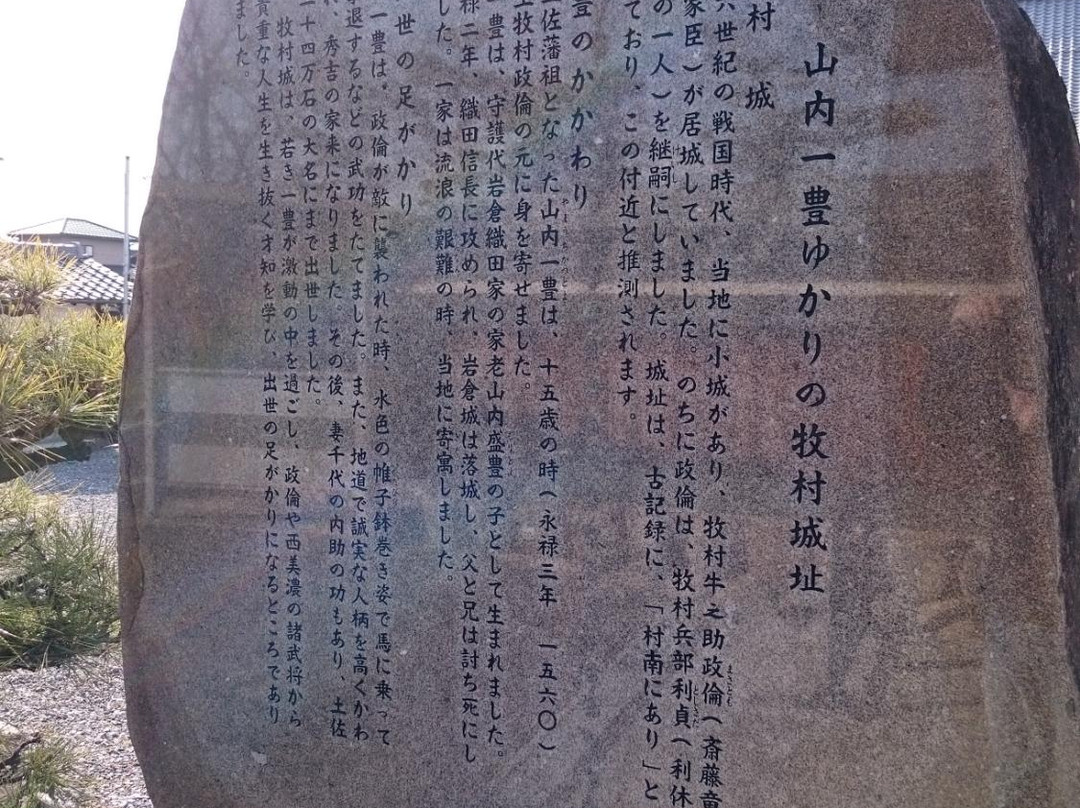 山内一豊ゆかりの牧村城址
村城
六世紀の戦国時代、当地に小城があり、牧村牛之助政倫(斎藤竜
家臣)が居城していました。のちに政倫は、牧村兵部利貞(利休
の一人)を継嗣にしました。城址は、古記録に、「村南にあり」と
ており、この付近と推測されます。
豊のかかわり
佐藩祖となった山内一豊は、十五歳の時(永禄三年 一五六〇)
牧村政倫の元に身を寄せました。
豊は、守護代岩倉織田家の家老山内盛豊の子として生まれました。
禄二年、織田信長に攻められ、岩倉城は落城し、父と兄は討ち死にし
した。一家は流浪の艱難の時、当地に寄寓しました。
世の足がかり
一豊は、政倫が敵に襲われた時、水色の帷子鉢巻き姿で馬に乗って
退するなどの武功をたてました。また、地道で誠実な人柄を高くかわ
、秀吉の家来になりました。その後、妻千代の内助の功もあり、土佐
十四万石の大名にまで出世しました。
牧村城は、若き一豊が激動の中を過ごし、政倫や西美濃の諸武将から
貴重な人生を生き抜く才知を学び、出世の足がかりになるところであり
ました。